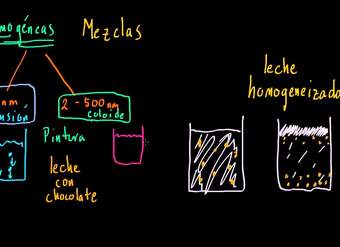 mogéneas
Mezclas
nm
nsión
2 - 500 nm
coloide
Pintura
leche
con
chocolate
leche
homogeneizad